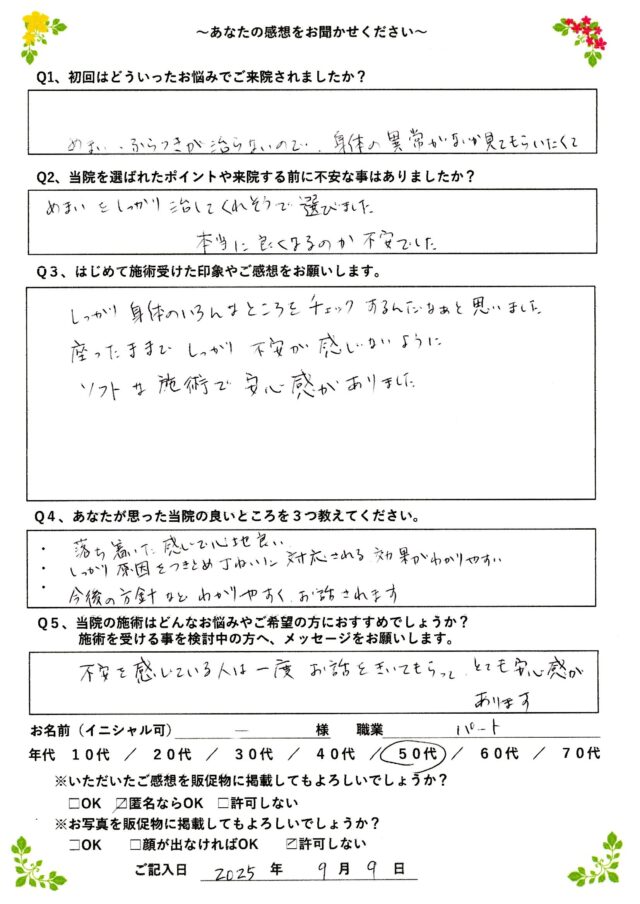 ～あなたの感想をお聞かせください～
Q1、初回はどういったお悩みでご来院されましたか？
めまい、ふらつきが治らないので、身体の異常がないか見てもらいたくて
Q2、当院を選ばれたポイントや来院する前に不安な事はありましたか？
めまいをしっかり治してくれそうで選びました
本当に良くなるのか不安でした
Q３、はじめて施術受けた印象やご感想をお願いします。
しっかり身体のいろんなところをチェックするんだなぁと思いました
座ったままでしっかり不安が感じないように
ソフトな施術で安心感がありました
Q４、あなたが思った当院の良いところを３つ教えてください。
・ 落ち着いた感じで心地良い
・ しっかり原因をつきとめていねいに対応される 効果がわかりやすい
・ 今後の方針などわかりやすくお話されます
Q５、当院の施術はどんなお悩みやご希望の方におすすめでしょうか？
施術を受ける事を検討中の方へ、メッセージをお願いします。
不安を感じている人は一度お話をきいてもらって、とても安心感が
あります
お名前（イニシャル可） ― 様 職業 パート
年代 １０代 ／ ２０代 ／ ３０代 ／ ４０代 ／ ５０代 ／ ６０代 ／ ７０代
※いただいたご感想を販促物に掲載してもよろしいでしょうか？
□OK ☑匿名ならOK □許可しない
※お写真を販促物に掲載してもよろしいでしょうか？
□OK □顔が出なければOK ☑許可しない
ご記入日 2025 年 9 月 9 日